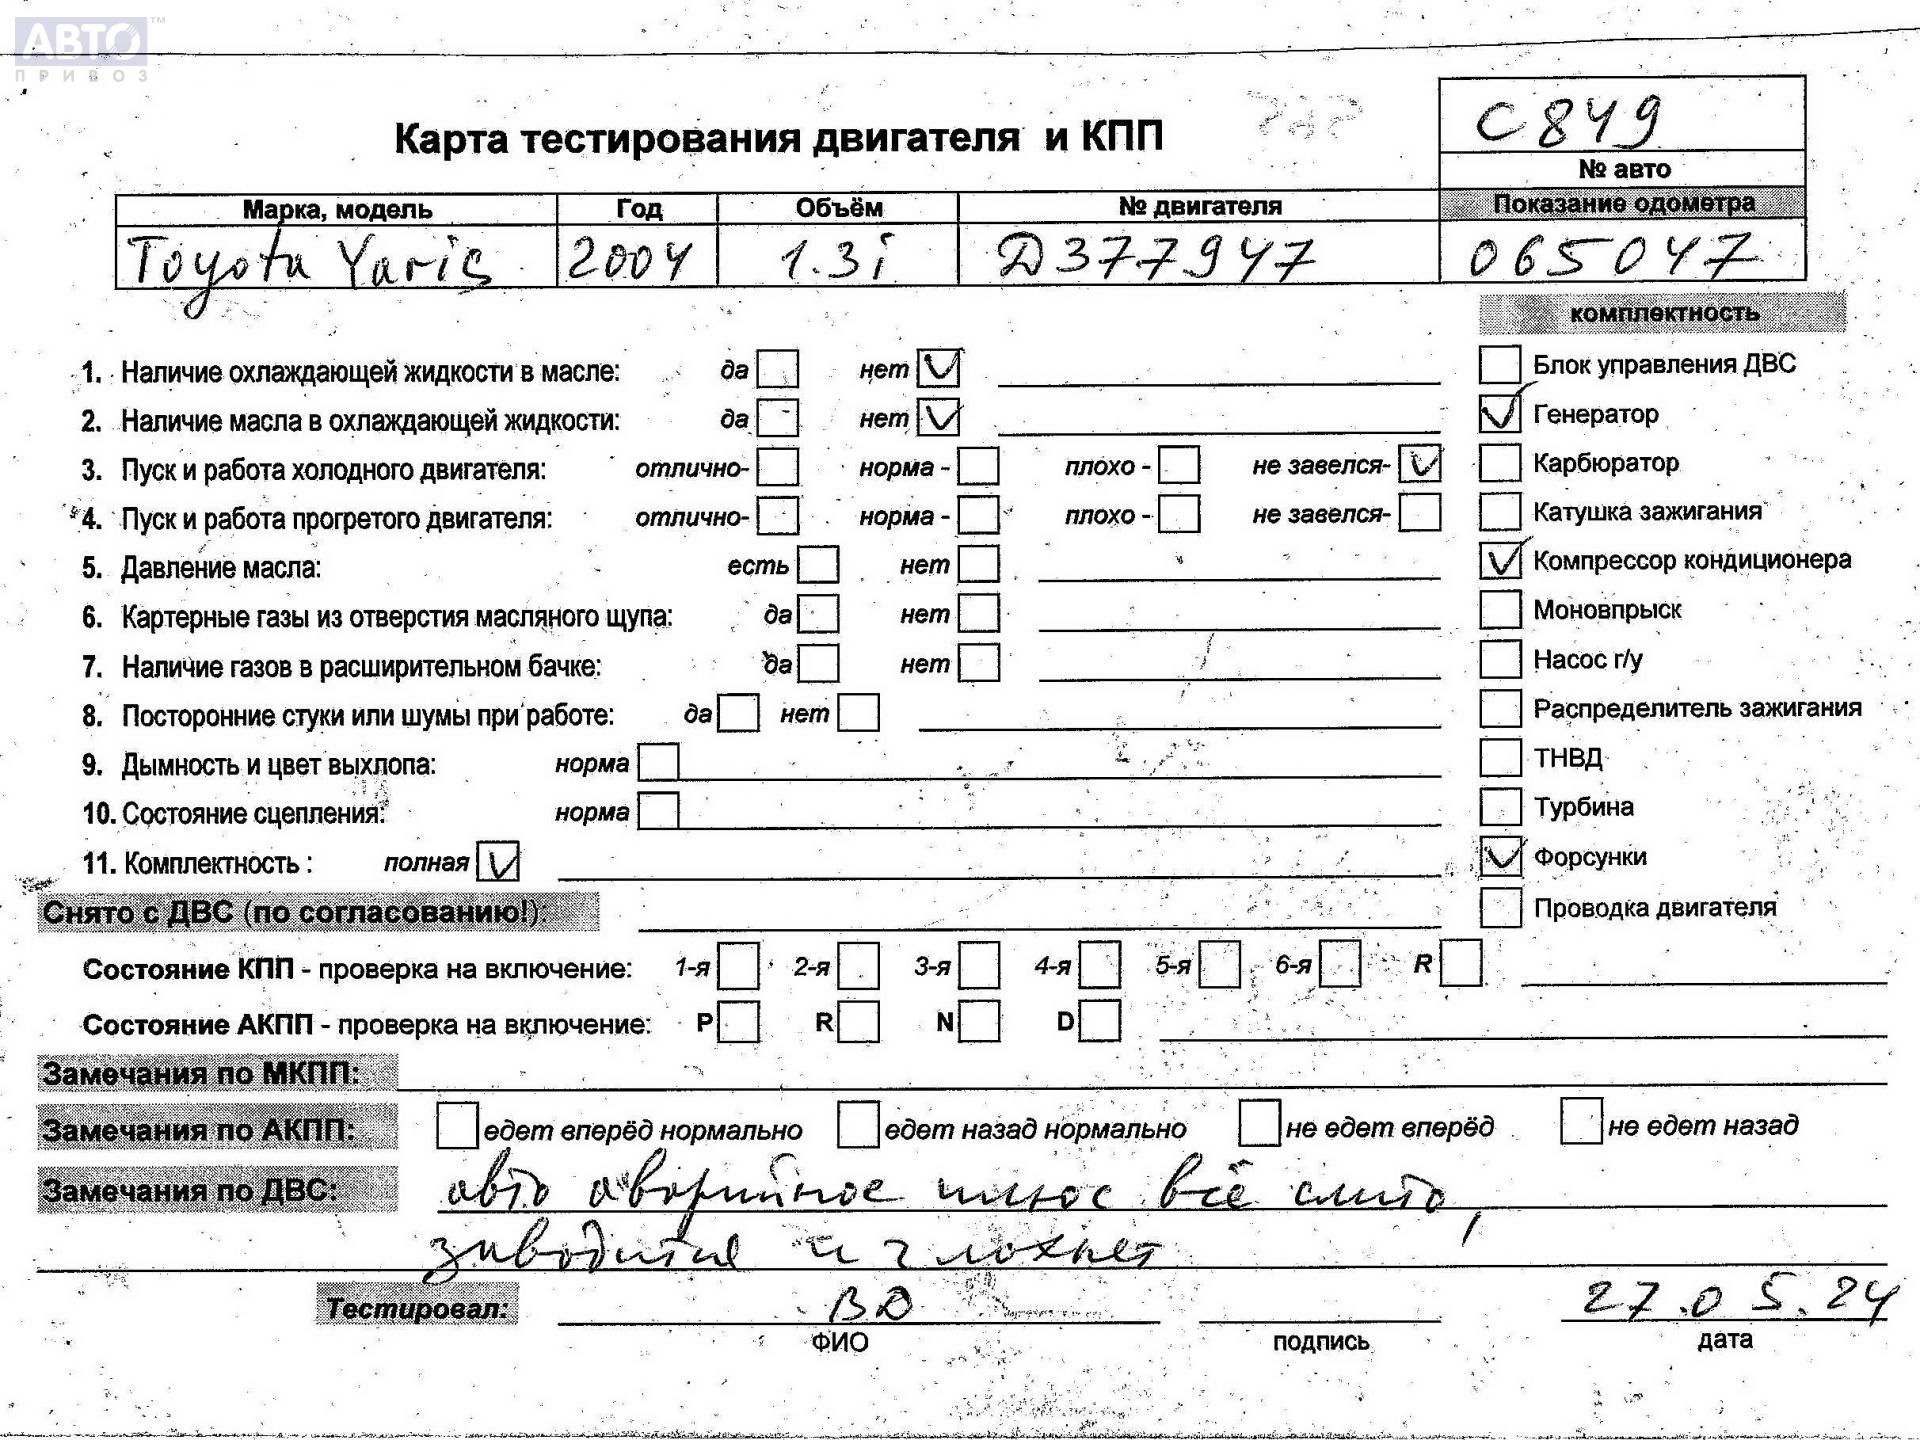 АВТО™
ПРИВОЗ
С849
Карта тестирования двигателя и КПП
№ авто
Марка, модель Год Объём № двигателя Показание одометра
Toyota Yaris 2004 1.3i D377947 065047
комплектность
1. Наличие охлаждающей жидкости в масле: да нет Блок управления ДВС
2. Наличие масла в охлаждающей жидкости: да нет Генератор
3. Пуск и работа холодного двигателя: отлично- норма - плохо - не завелся- Карбюратор
4. Пуск и работа прогретого двигателя: отлично- норма - плохо - не завелся- Катушка зажигания
5. Давление масла: есть нет Компрессор кондиционера
6. Картерные газы из отверстия масляного щупа: да нет Моновпрыск
7. Наличие газов в расширительном бачке: да нет Насос г/у
8. Посторонние стуки или шумы при работе: да нет Распределитель зажигания
9. Дымность и цвет выхлопа: норма ТНВД
10. Состояние сцепления: норма Турбина
11. Комплектность : полная Форсунки
Снято с ДВС (по согласованию!): Проводка двигателя
Состояние КПП - проверка на включение: 1-я 2-я 3-я 4-я 5-я 6-я R
Состояние АКПП - проверка на включение: P R N D
Замечания по МКПП:
Замечания по АКПП: едет вперёд нормально едет назад нормально не едет вперёд не едет назад
Замечания по ДВС: авто аварийное плюс всё слито,
заводится и глохнет
Тестировал: ВД 27.05.24
ФИО подпись дата